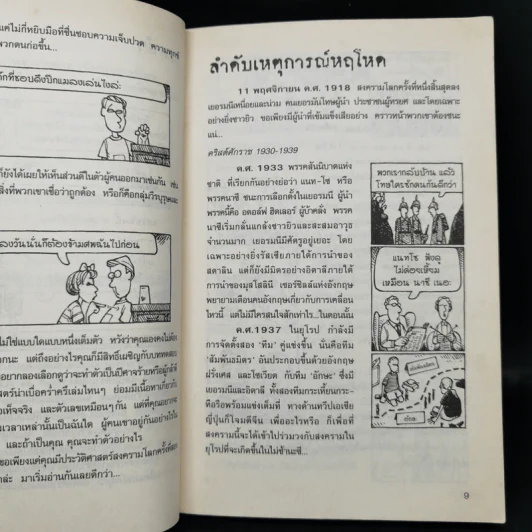 แค่ไม่กี่หยิบมือที่ชื่นชอบความเจ็บปวด ความทุกข์
พวกตนก่อขึ้น...
ที่ชอบดึงปีกแมลงเล่นไงล่ะ
ก็ยังได้เผยให้เห็นส่วนดีในตัวผู้คนออกมาเช่นกัน เช่น
สิ่งที่พวกเขาเชื่อว่าถูกต้อง หรือก็คือกลุ่มวีรบุรุษและ
ลงวันนั้นก็ต้องข้ามศพฉันไปก่อน
ไม่ใช่แบบใดแบบหนึ่งเต็มตัว หวังว่าคุณเองคงไม่ต้อง
แต่ถึงอย่างไรคุณก็มีสิทธิ์เผชิญกับบททดสอบ
อยากลองเลือกดูว่าจะทำตัวเป็นปีศาจร้ายหรือผู้กล้า
สตร์น่าเบื่อคร่ำครึเล่มไหนๆ ย่อมมีเนื้อหาเกี่ยวกับ
จริง และตัวเลขเหมือนๆ กัน แต่ที่คุณอยากจะ
วลาเหล่านั้นเป็นฉันใด ผู้คนเขาอยู่กันอย่างไรใน
และถ้าเป็นคุณ คุณจะทำตัวอย่างไร
ขอเพียงแค่คุณมีประวัติศาสตร์สงครามโลกครั้งที่
ล่ะ มาเริ่มอ่านกันเลยดีกว่า...
ลำดับเหตุการณ์หฤโหด
11 พฤศจิกายน ค.ศ. 1918 สงครามโลกครั้งที่หนึ่งสิ้นสุดลง
เยอรมนีเหนื่อยและน่วม คนเยอรมันโทษผู้นำ ประชาชนผู้ทรยศ และโดยเฉพาะ
อย่างยิ่งชาวยิว ขอเพียงมีผู้นำที่เข้มแข็งเสียอย่าง คราวหน้าพวกเขาต้องชนะ
แน่...
คริสต์ศักราช 1930-1939
ค.ศ. 1933 พรรคสันนิบาตแห่ง
ชาติ ที่เรียกกันอย่างย่อว่า แนท-โซ หรือ
พรรคนาซี ชนะการเลือกตั้งในเยอรมนี ผู้นำ
พรรคนี้คือ อดอล์ฟ ฮิตเลอร์ ผู้บ้าคลั่ง พรรค
นาซีเริ่มกลั่นแกล้งชาวยิวและสะสมอาวุธ
จำนวนมาก เยอรมนีมีศัตรูอยู่เยอะ โดย
เฉพาะอย่างยิ่งรัสเซียภายใต้การนำของ
สตาลิน แต่ก็ยังมีมิตรอย่างอิตาลีภายใต้
การนำของมุสโสลินี เชอร์ชิลล์แห่งอังกฤษ
พยายามเตือนคนอังกฤษเกี่ยวกับการเคลื่อน
ไหวนี้ แต่ไม่มีใครสนใจสักเท่าไร...ในตอนนั้น
ค.ศ.1937 ในยุโรป กำลังมี
การจัดตั้งสอง 'ทีม' คู่แข่งขึ้น นั่นคือทีม
'สัมพันธมิตร' อันประกอบขึ้นด้วยอังกฤษ
ฝรั่งเศส และโซเวียต กับทีม 'อักษะ' ซึ่งมี
เยอรมนีและอิตาลี ทั้งสองทีมกระเหี้ยนกระ-
หือรือพร้อมแข่งเต็มที่ ทางด้านทวีปเอเชีย
ญี่ปุ่นก็โจมตีจีน เพื่ออะไรหรือ ก็เพื่อที่
สงครามนี้จะได้เข้าไปร่วมวงกับสงครามใน
ยุโรปที่จะเกิดขึ้นในไม่ช้านะซี...
พวกเรากลับบ้าน แล้ว
โทษใครซักคนกันดีกว่า
แนทโซ ฟังดู
ไม่ค่อยเหี้ยม
เหมือน นาซี เนอะ
9